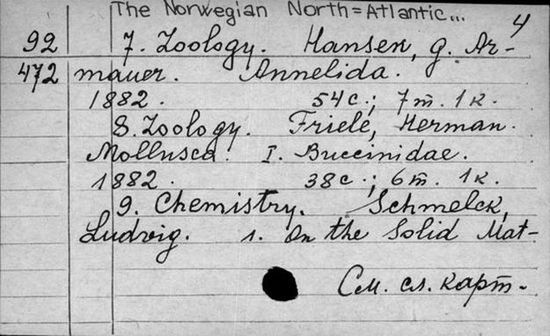 The Norwegian North=Atlantic...
4
92 7. Zoology. Hansen, g. Ar-
472 mauer. Annelida.
1882. 54 c.; 7 т. 1 к.
8. Zoology. Friele, Herman.
Mollusca. I. Buccinidae.
1882. 38 c.; 6 т. 1 к.
9. Chemistry. Schmelck,
Ludvig. 1. On the Solid Mat-
См. сл. карт.